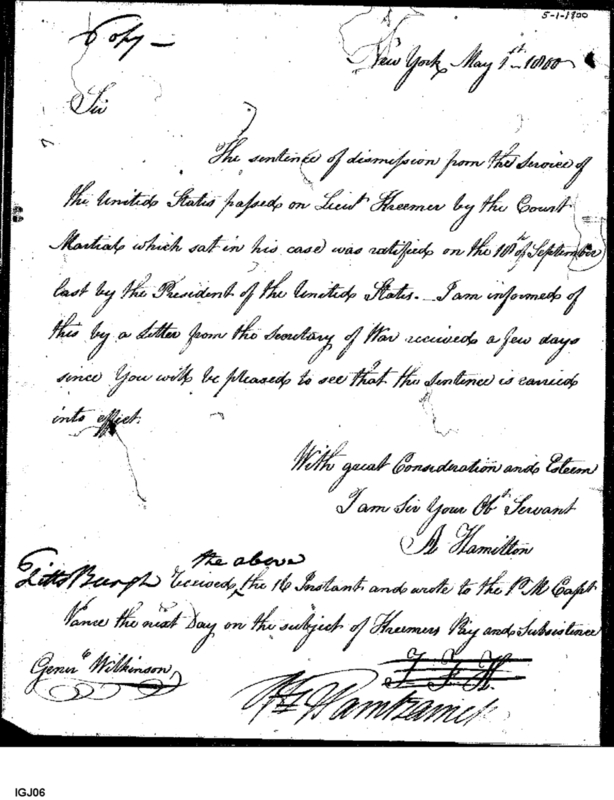 5-1-1800
Copy —
New York May 1st 1800
Sir
The sentence of dismission from the Service of
the United States passed on Lieut Freemer by the Court
Martial which sat in his case was ratified on the 18th of September
last by the President of the United States. I am informed of
this by a Letter from the Secretary of War received a few days
since You will be pleased to see that the sentence is carried
into effect.
With great Consideration and Esteem
I am Sir Your Obt Servant
A Hamilton
the above
PittsBurgh Received the 16 Instant and wrote to the P M Capt
Vance the next Day on the subject of Freemers Pay and Subsistence
Generl Wilkinson
F Hamtramck
IGJ06